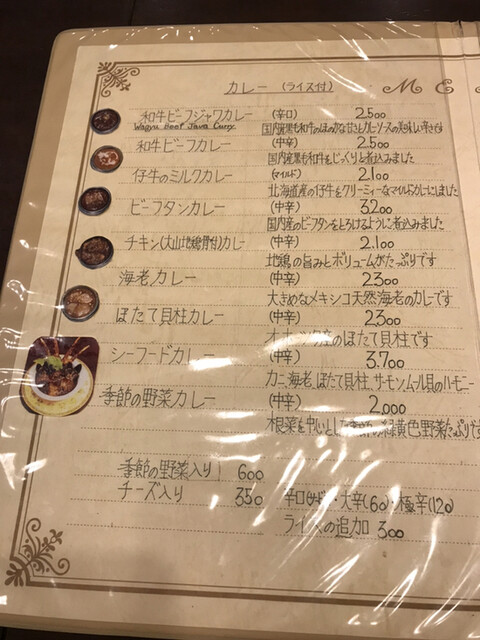 カレー (ライス付) ME
和牛ビーフジャワカレー (辛口) 2.500
Wagyu Beef Java Curry 国内産黒毛和牛のほのかな甘さとカレーソースの美味しい辛さです
和牛ビーフカレー (中辛) 2.500
国内産黒毛和牛をじっくりと煮込みました
仔牛のミルクカレー (マイルド) 2.100
北海道産の仔牛をクリーミィーなマイルドカレーにしました
ビーフタンカレー (中辛) 3.200
国内産のビーフタンをとろけるように煮込みました
チキン(大山地鶏骨付)カレー (中辛) 2.100
地鶏の旨みとボリュームがたっぷりです
海老カレー (中辛) 2.300
大きめなメキシコ天然海老のカレーです
ほたて貝柱カレー (中辛) 2.300
オホーツク産のほたて貝柱です
シーフードカレー (中辛) 3.700
カニ海老,ほたて貝柱,サーモン,ムール貝のハーモニー
季節の野菜カレー (中辛) 2,000
根菜を中心とした季節の緑黄色野菜たっぷりです
季節の野菜入り 600
チーズ入り 350 辛口・大辛(60)・極辛(120)
ライスの追加 300